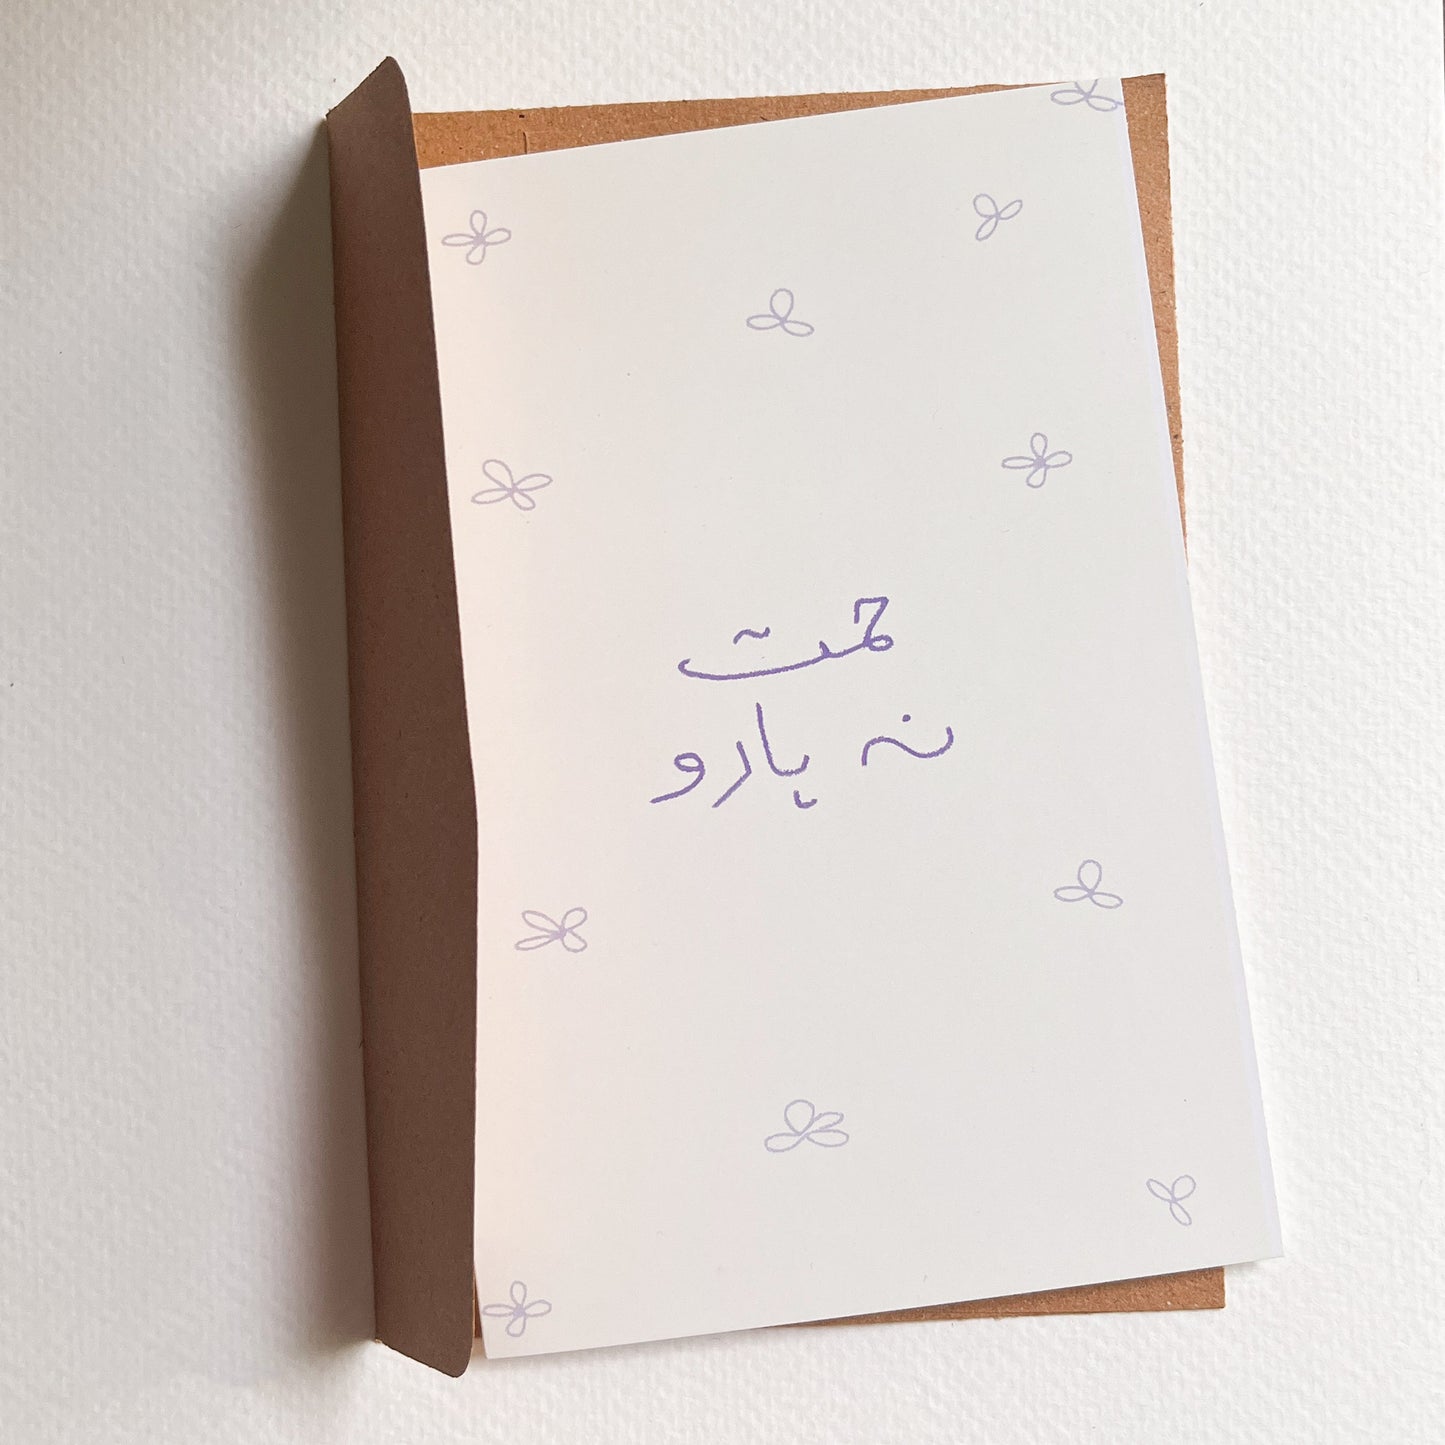 ہمت
نہ ہارو